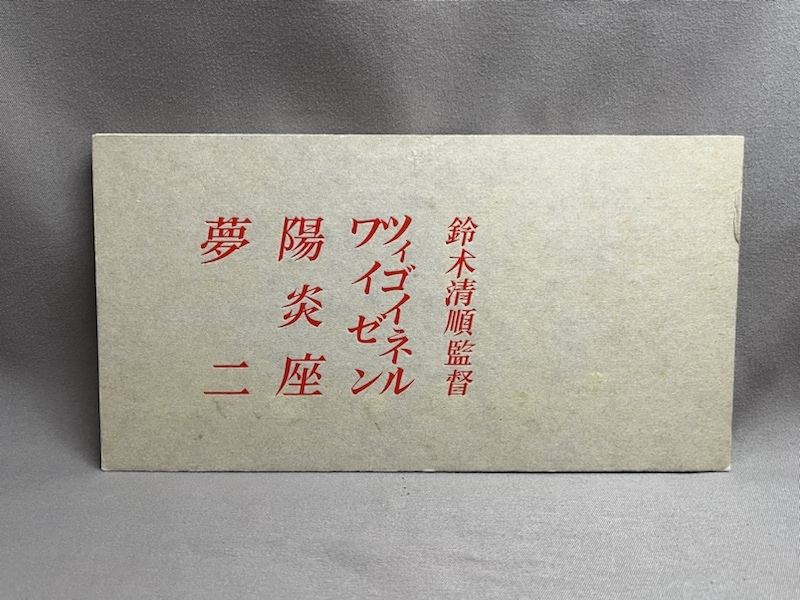 鈴木清順監督
ツィゴイネル
ワイゼン
陽炎座
夢二